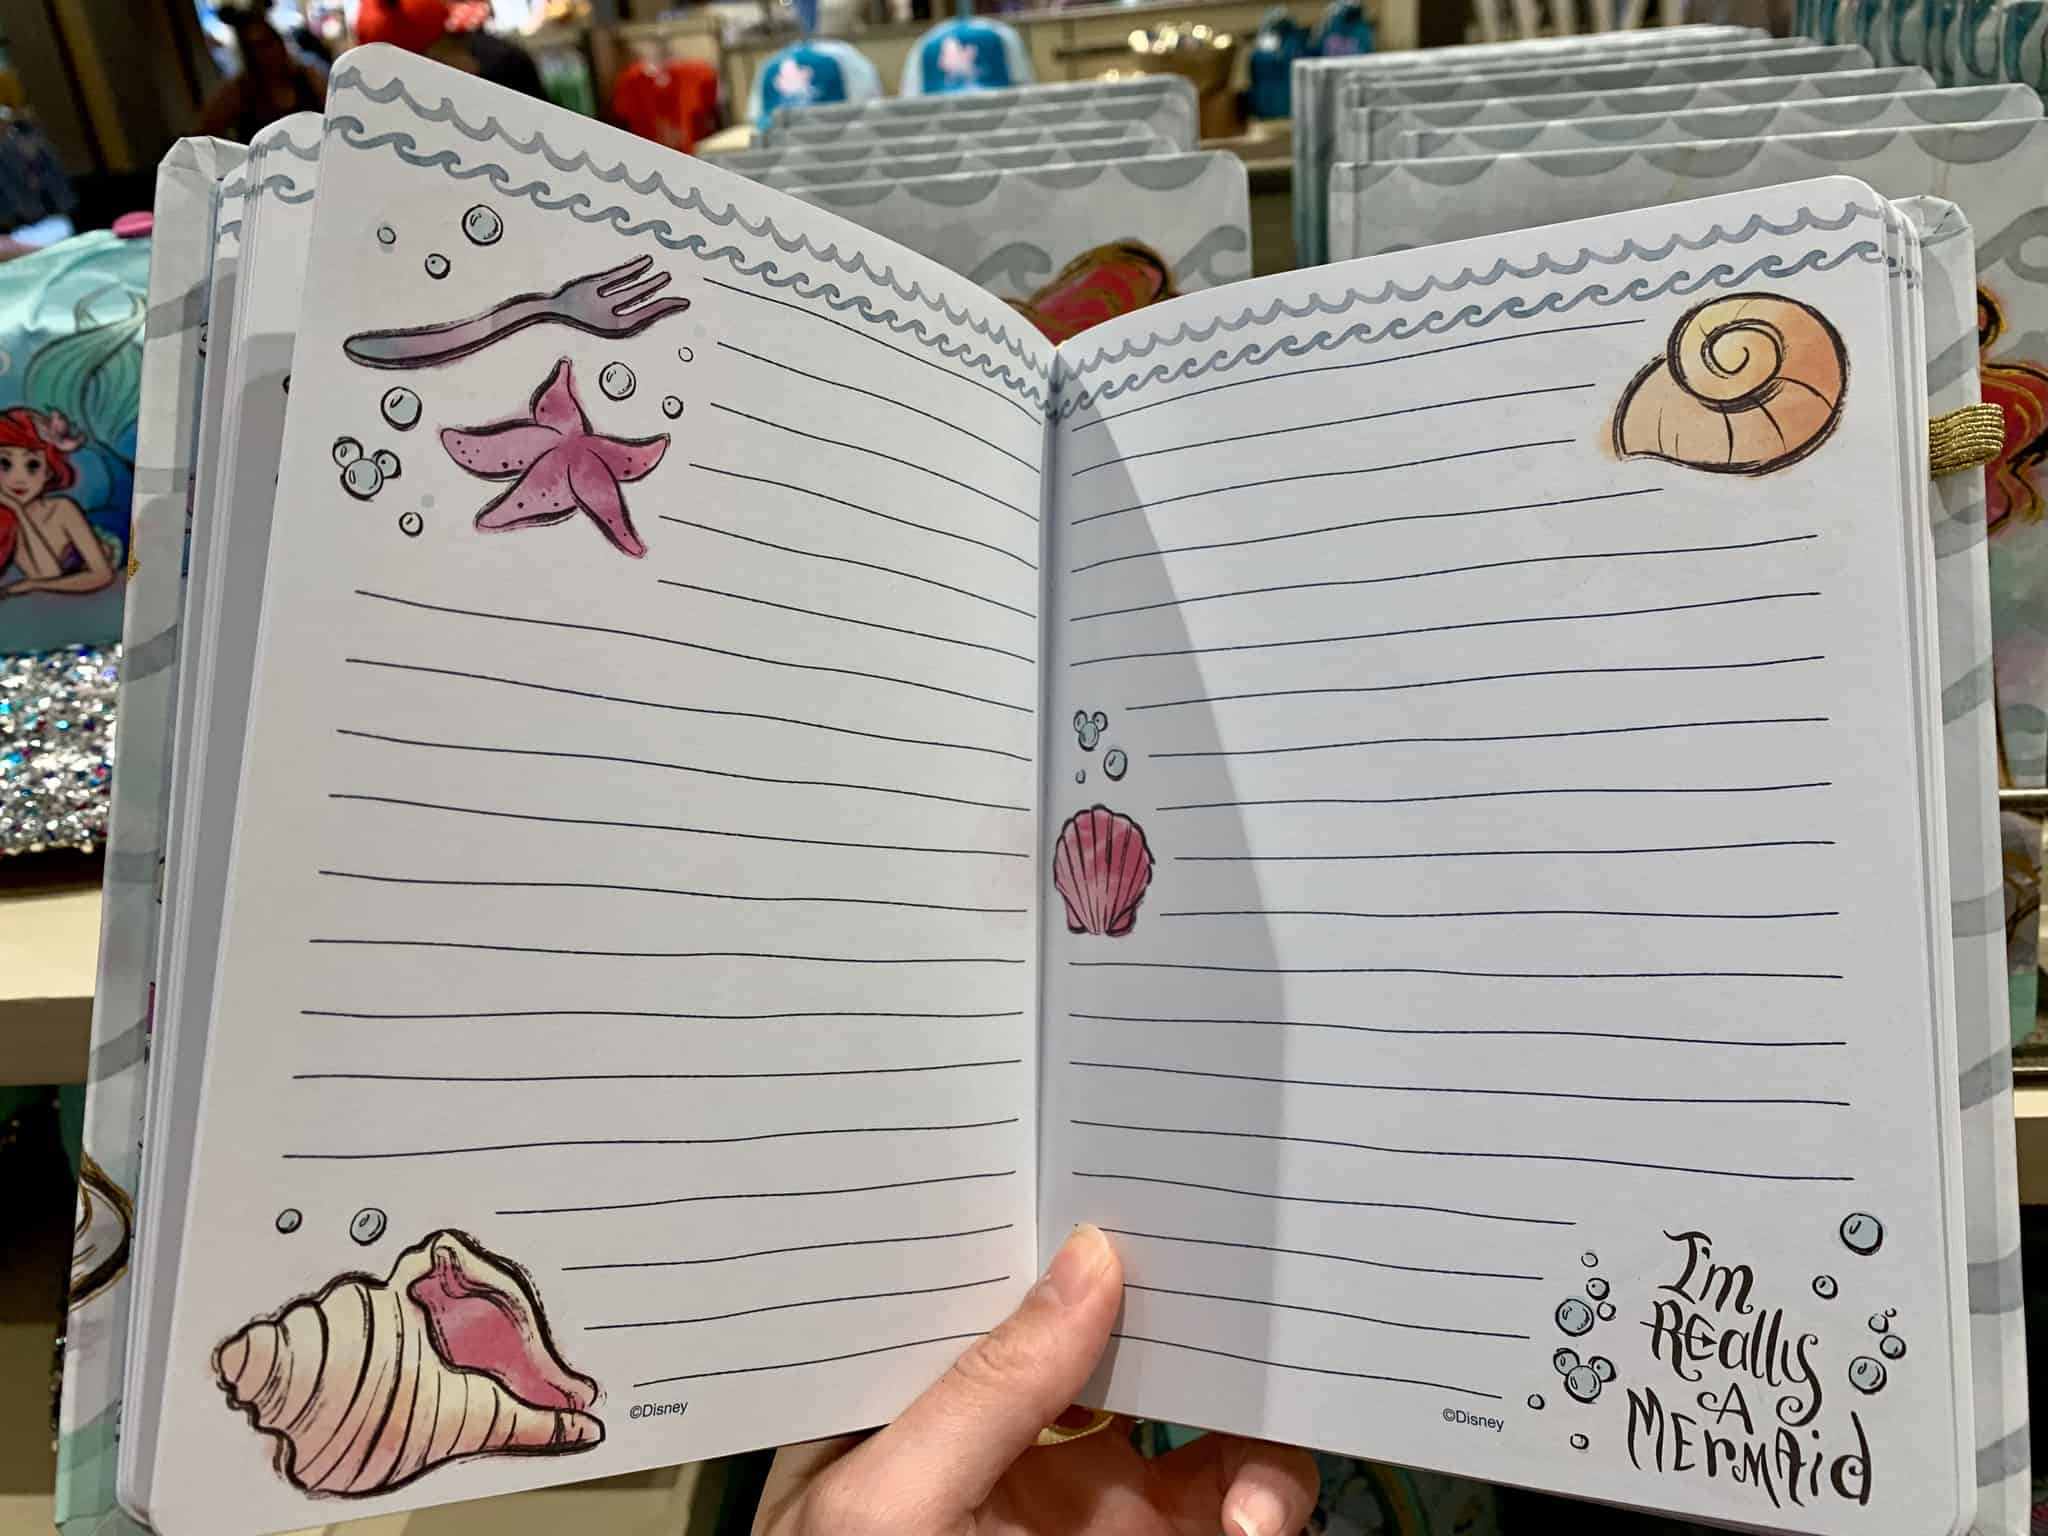 ©Disney
©Disney
I'm
REally
A
MErmAid